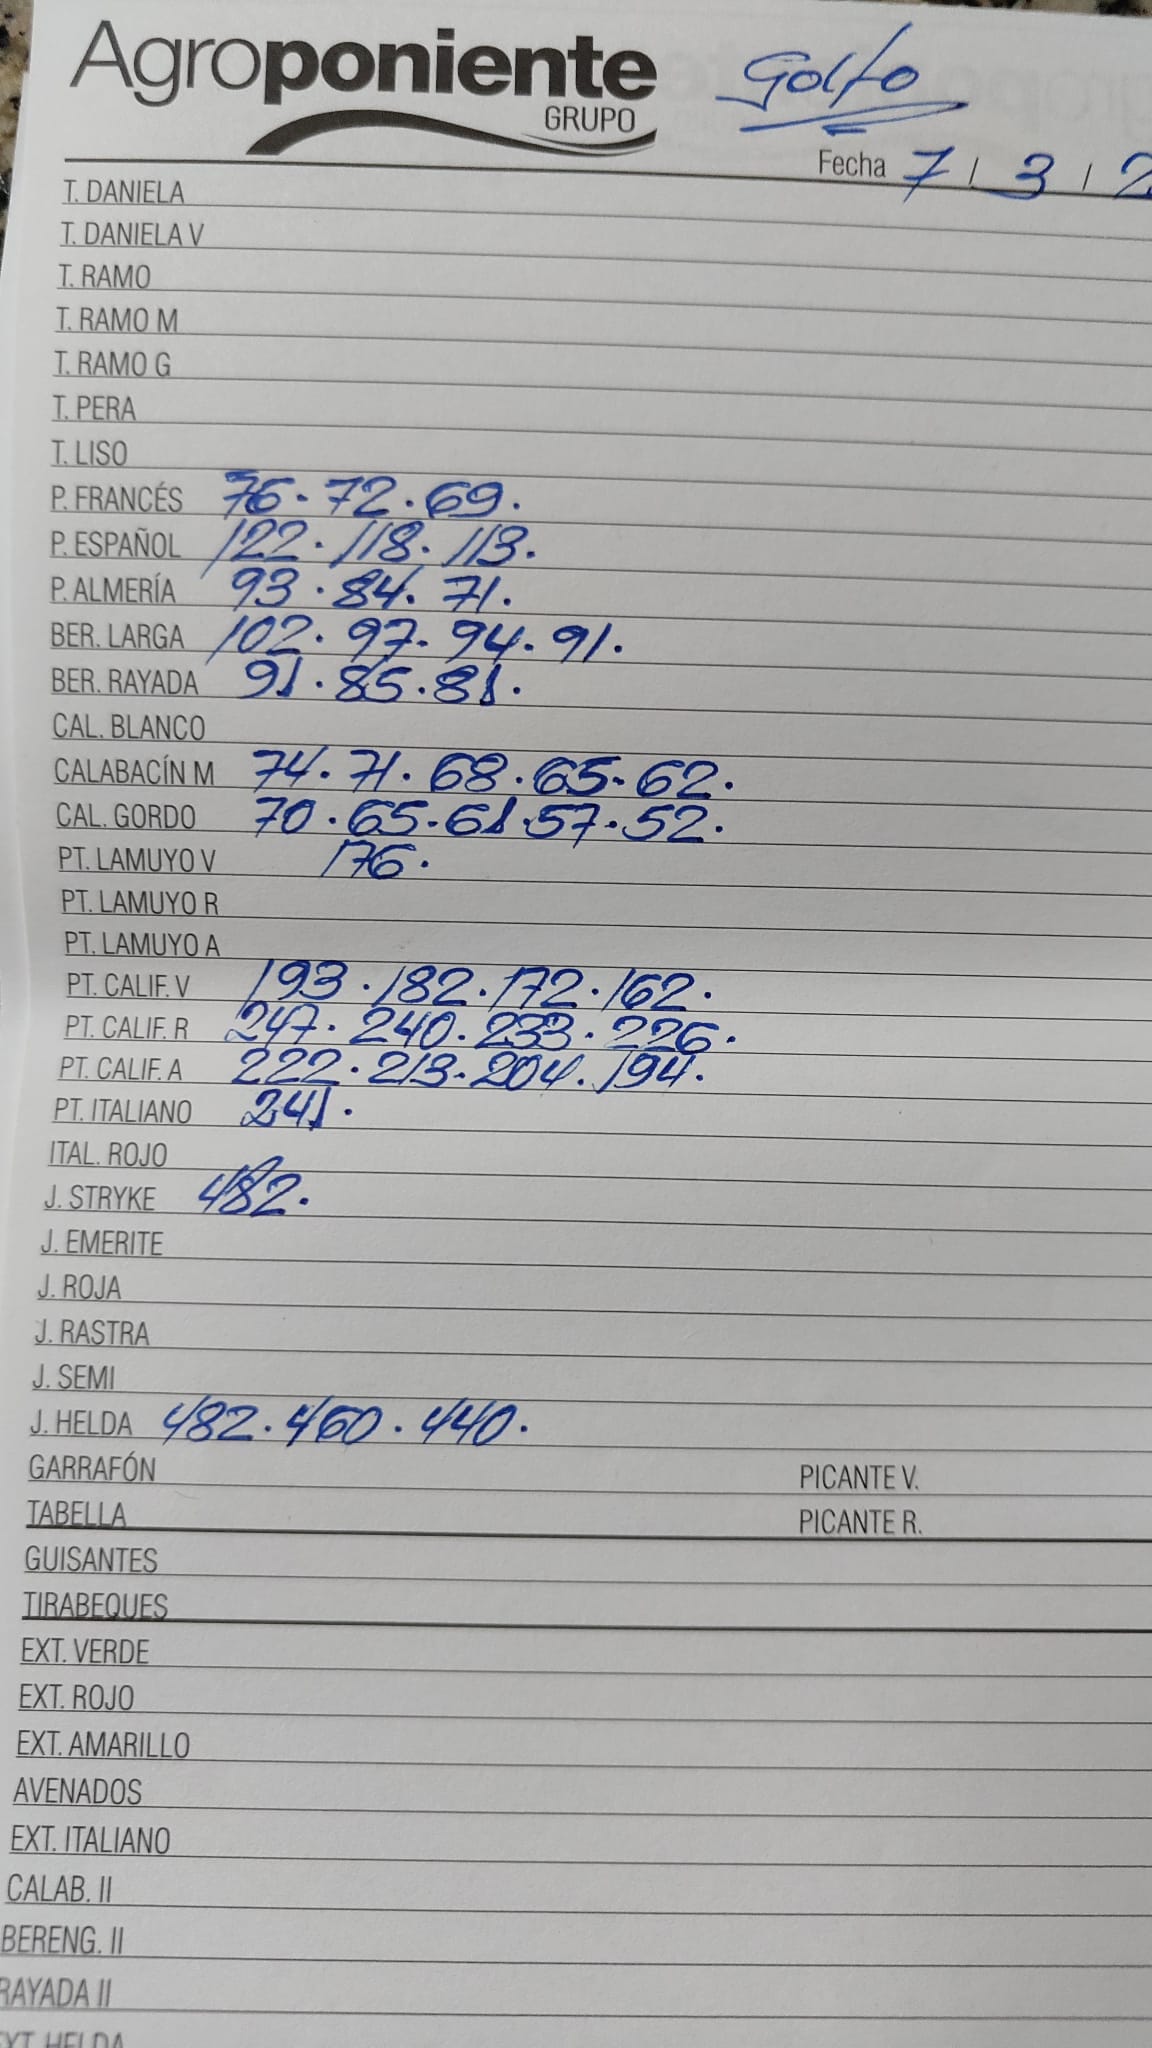 Agroponiente
GRUPO
Golfo
Fecha 7 / 3 / 2
T. DANIELA
T. DANIELA V
T. RAMO
T. RAMO M
T. RAMO G
T. PERA
T. LISO
P. FRANCÉS 76. 72. 69.
P. ESPAÑOL 122. 118. 113.
P. ALMERÍA 93. 84. 71.
BER. LARGA 102. 97. 94. 91.
BER. RAYADA 91. 85. 81.
CAL. BLANCO
CALABACÍN M 74. 71. 68. 65. 62.
CAL. GORDO 70. 65. 61. 57. 52.
PT. LAMUYO V 176.
PT. LAMUYO R
PT. LAMUYO A
PT. CALIF. V 193. 182. 172. 162.
PT. CALIF. R 247. 240. 233. 226.
PT. CALIF. A 222. 213. 204. 194.
PT. ITALIANO 241.
ITAL. ROJO
J. STRYKE 482.
J. EMERITE
J. ROJA
J. RASTRA
J. SEMI
J. HELDA 482. 460. 440.
GARRAFÓN PICANTE V.
TABELLA PICANTE R.
GUISANTES
TIRABEQUES
EXT. VERDE
EXT. ROJO
EXT. AMARILLO
AVENADOS
EXT. ITALIANO
CALAB. II
BERENG. II
RAYADA II
EXT. HELDA